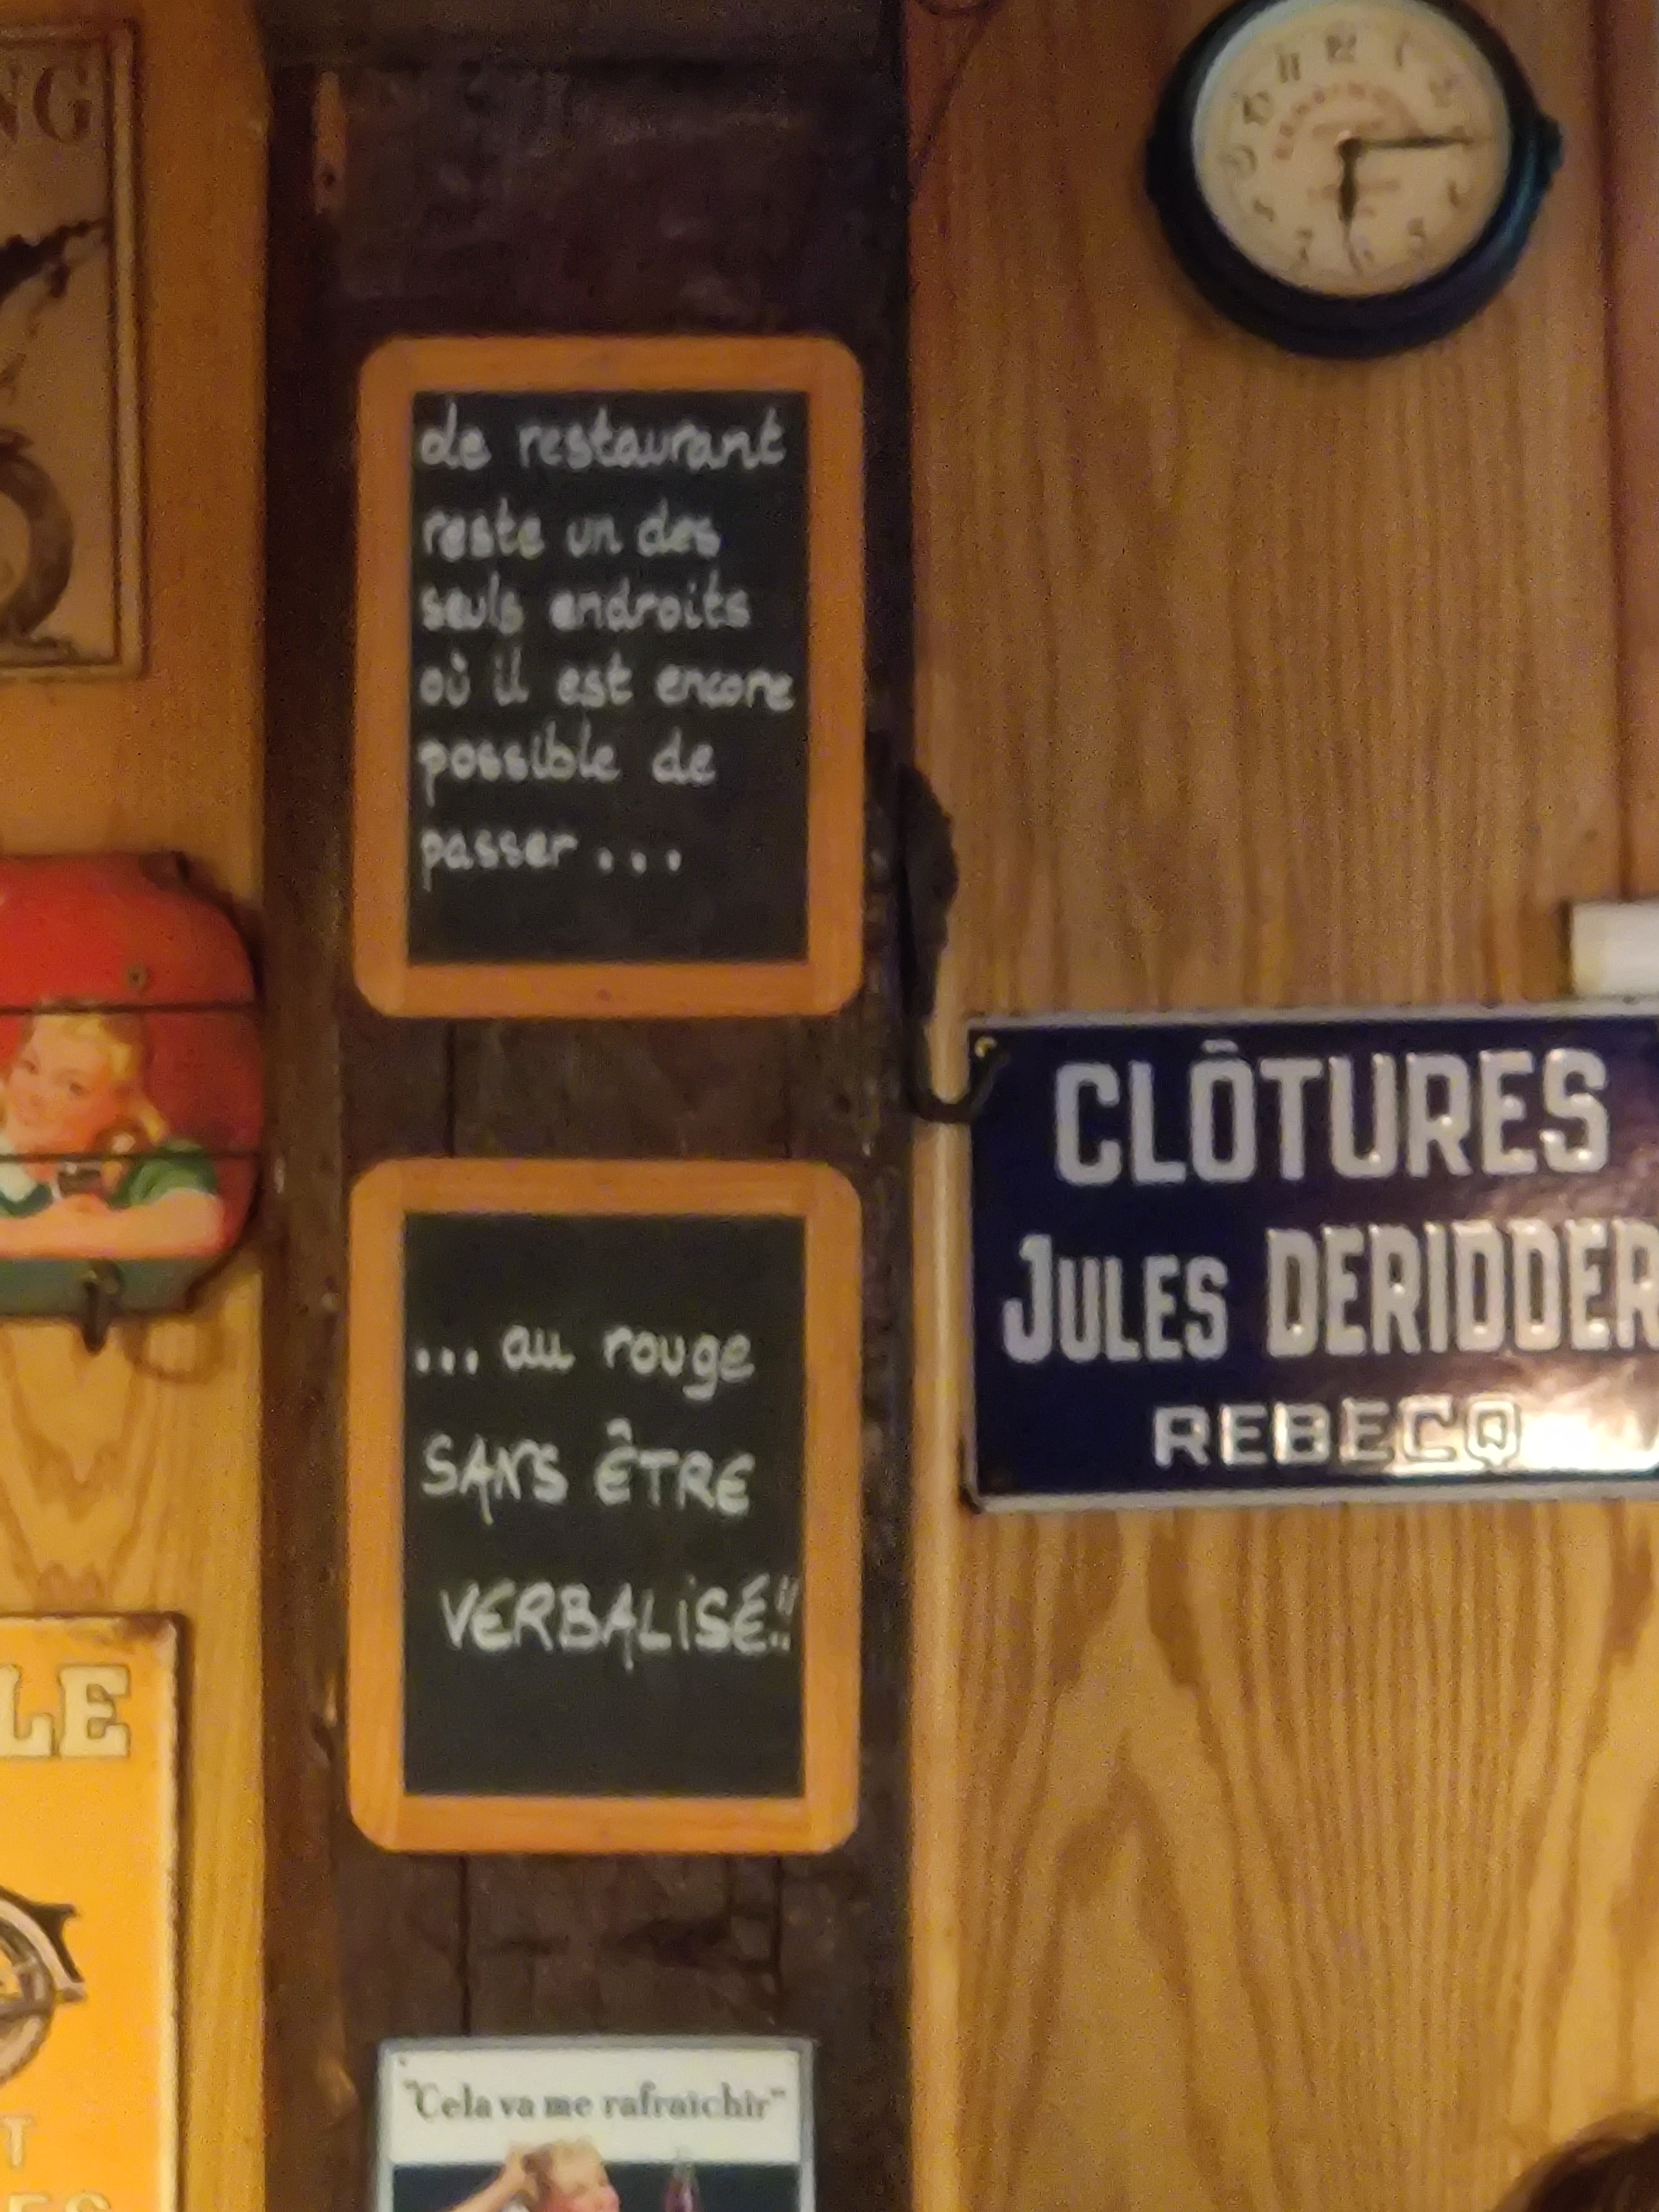 NG
11 12 1
de restaurant
reste un des
seuls endroits
où il est encore
possible de
passer ...
... au rouge
SANS ÊTRE
VERBALISÉ!!
CLÔTURES
JULES DERIDDER
REBECQ
LE
T
ES
"Cela va me rafraichir"